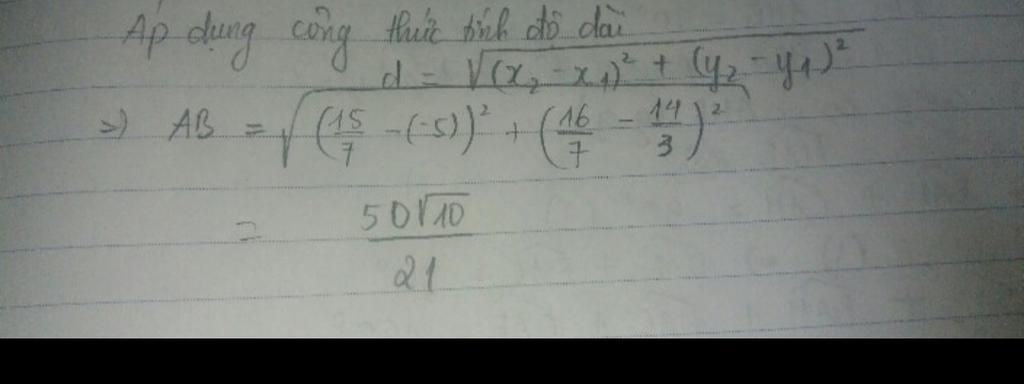 Áp dụng công thức tính độ dài
d = √(x₂ - x₁)² + (y₂ - y₁)²
=> AB = √(15/7 - (-5))² + (16/7 - 14/3)²
= 50√10/21